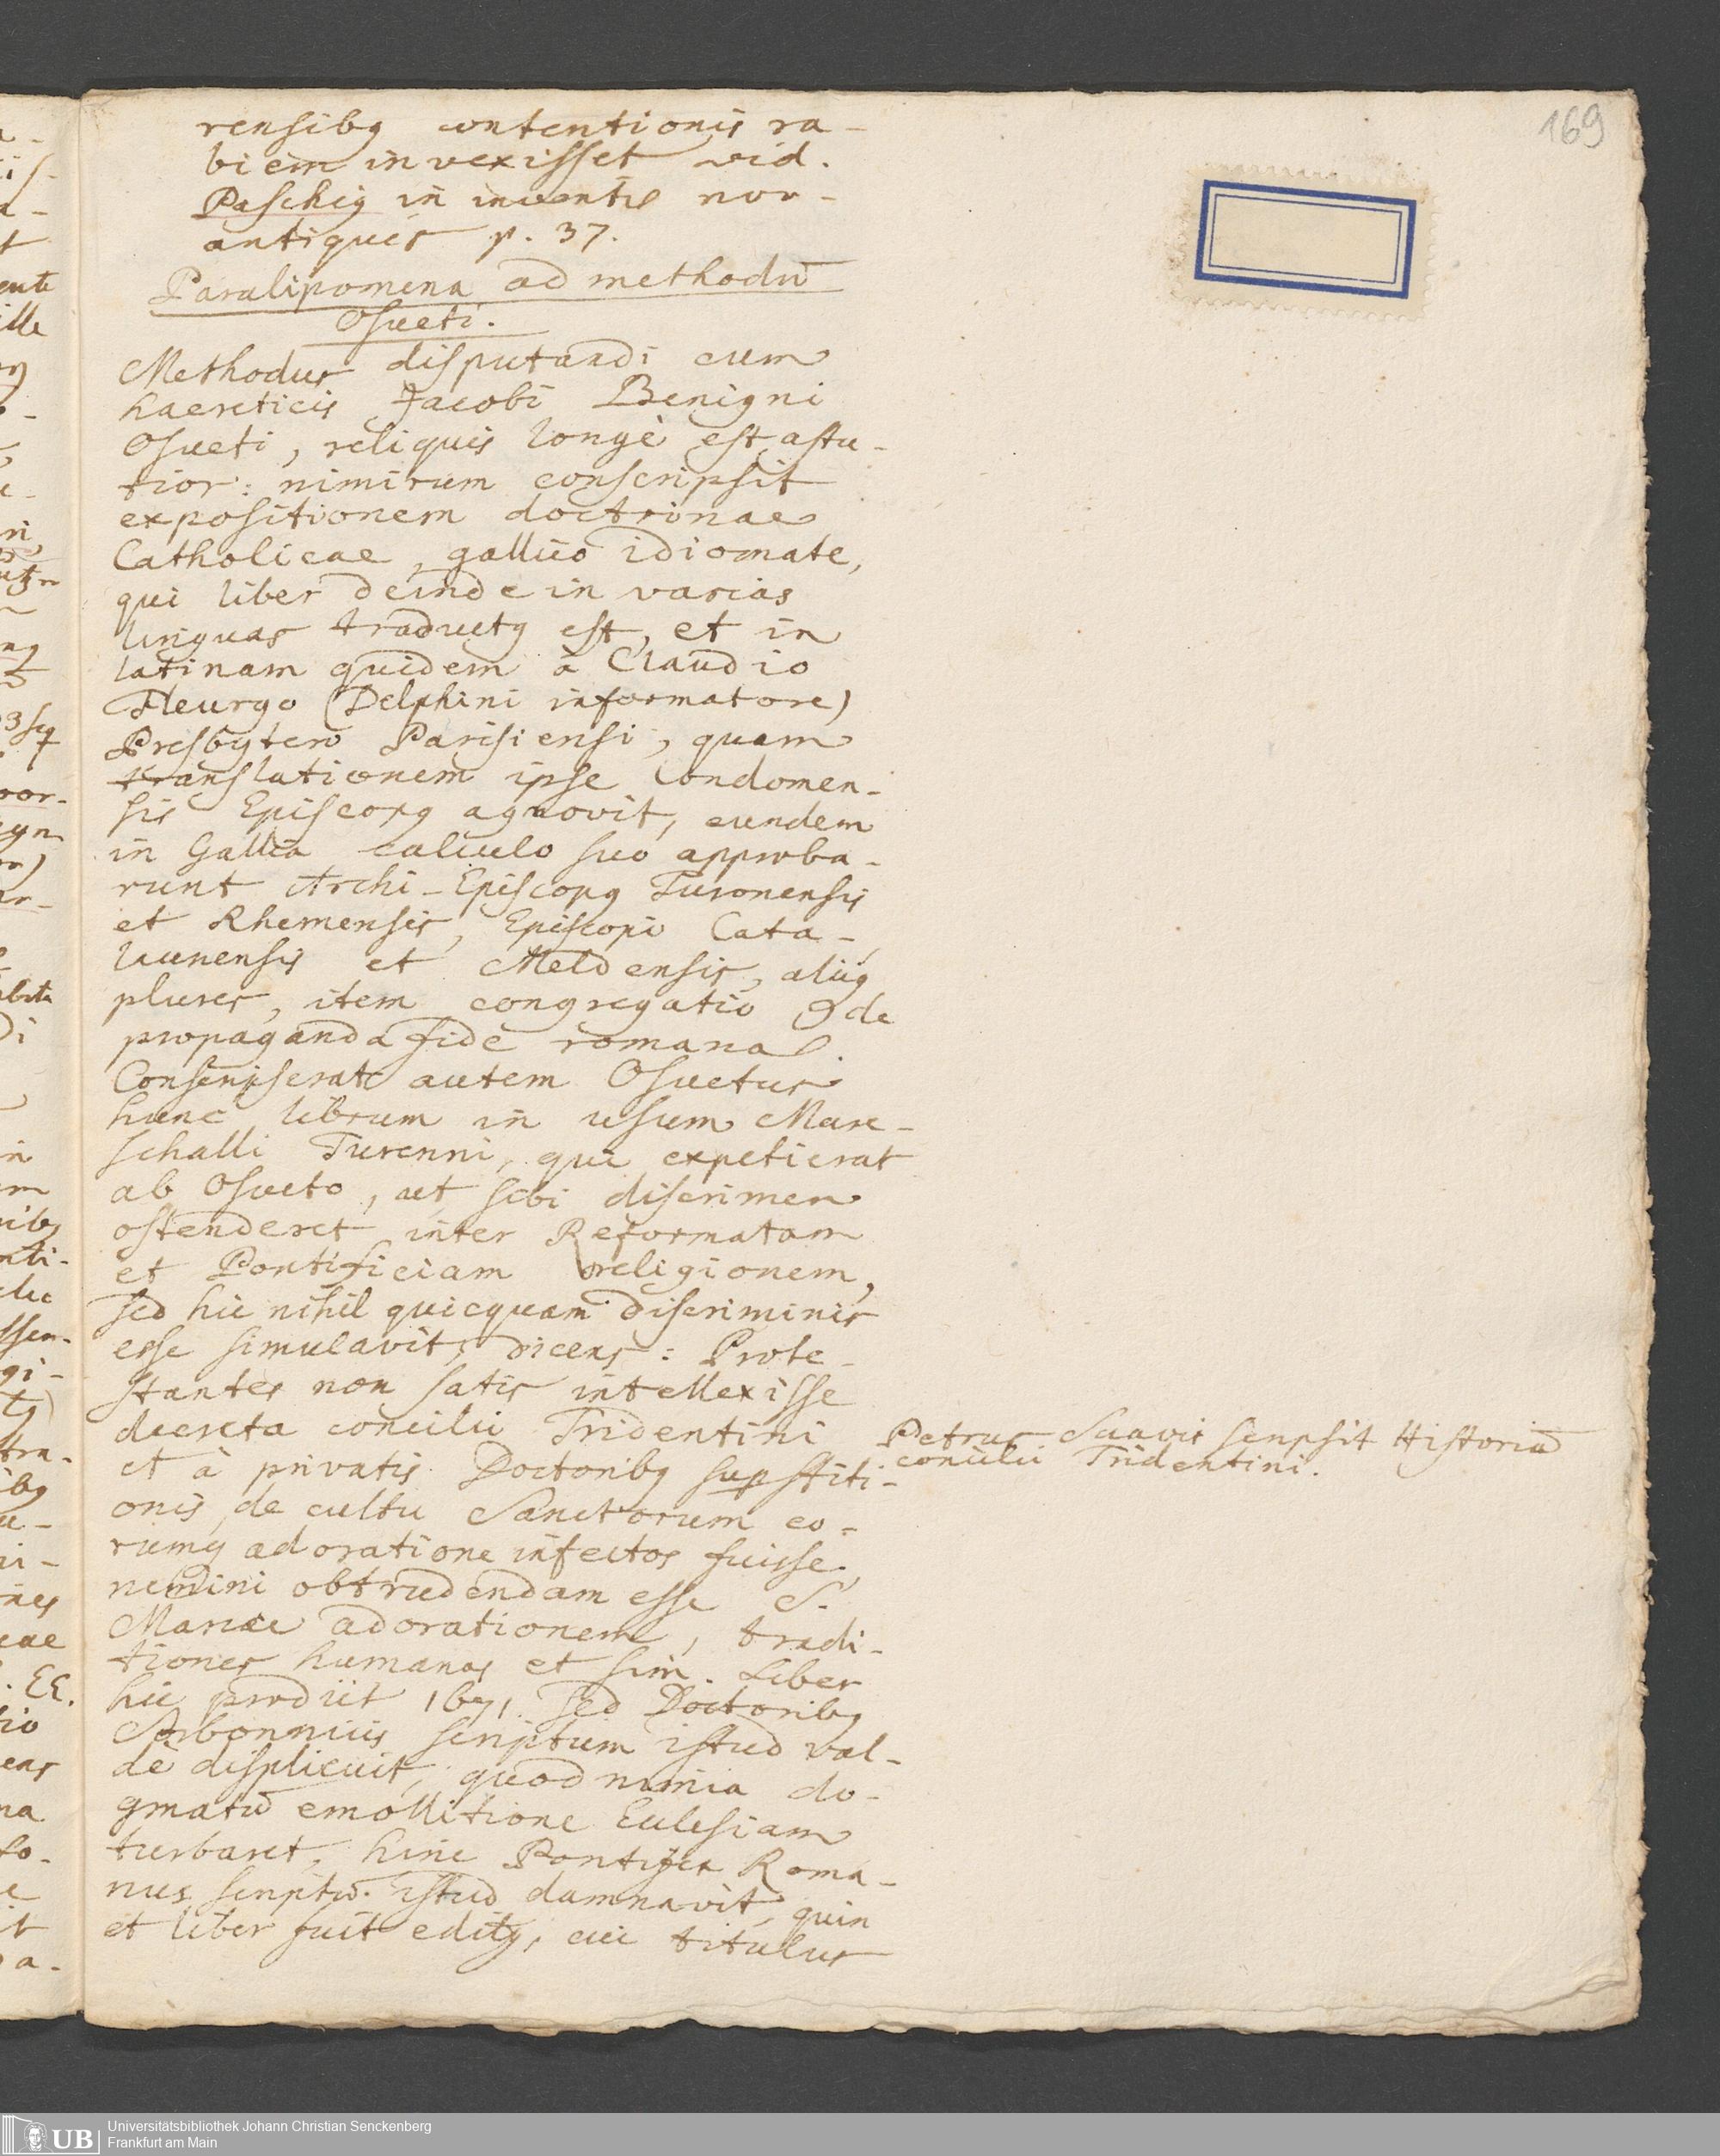 169
rensibꝫ contentionis ra-
biem invexisset vid.
Paschiꝫ in inventis nov-
antiquis p. 37.
Paralipomena ad methodū
Osueti.
Methodus disputandi cum
haereticis Jacobi Benigni
Osueti, reliquis longè est astu-
tior: nimirum conscripsit
expositionem doctrinae
Catholicae, gallico idiomate,
qui liber deinde in varias
linguas traductꝫ est, et in
latinam quidem à Claudio
Fleurgo (Delphini informatore)
Presbytero Parisiensi, quam
translationem ipse Condomen-
sis Episcopꝫ agnovit, eundem
in Gallia calculo suo approba-
runt Archi-Episcopꝫ Turonensis
et Rhemensis, Episcopi Cata-
launensis et Meldensis, aliiꝫ
plures, item congregatio de
propaganda fide romana.
Conscripserat autem Osuetus
hunc librum in usum Mare-
schalli Turenni, qui expetierat
ab Osueto, ut sibi discrimen
ostenderet inter Reformatam
et Pontificiam religionem,
sed hic nihil quicquam discriminis
esse simulavit, dicens: Prote-
stantes non satis intellexisse
decreta concilii Tridentini
et à privatis Doctoribꝫ supstiti-
onis de cultu Sanctorum eo-
rumꝫ adoratione infectos fuisse,
nemini obtrudendam esse S.
Mariae adorationem, tradi-
tiones humanas et sim. Liber
hic prodiit 1671. sed Doctoribꝫ
Sorbonniis scriptum istud val-
dè displicuit, quod nimia do-
gmatū emollitione Ecclesiam
turbaret, hinc Pontifex Roma-
nus scriptū istud damnavit, quin
et liber fuit editꝫ, cui titulus
Petrus Suavis scripsit Historiā
concilii Tridentini.
UB
Universitätsbibliothek Johann Christian Senckenberg
Frankfurt am Main